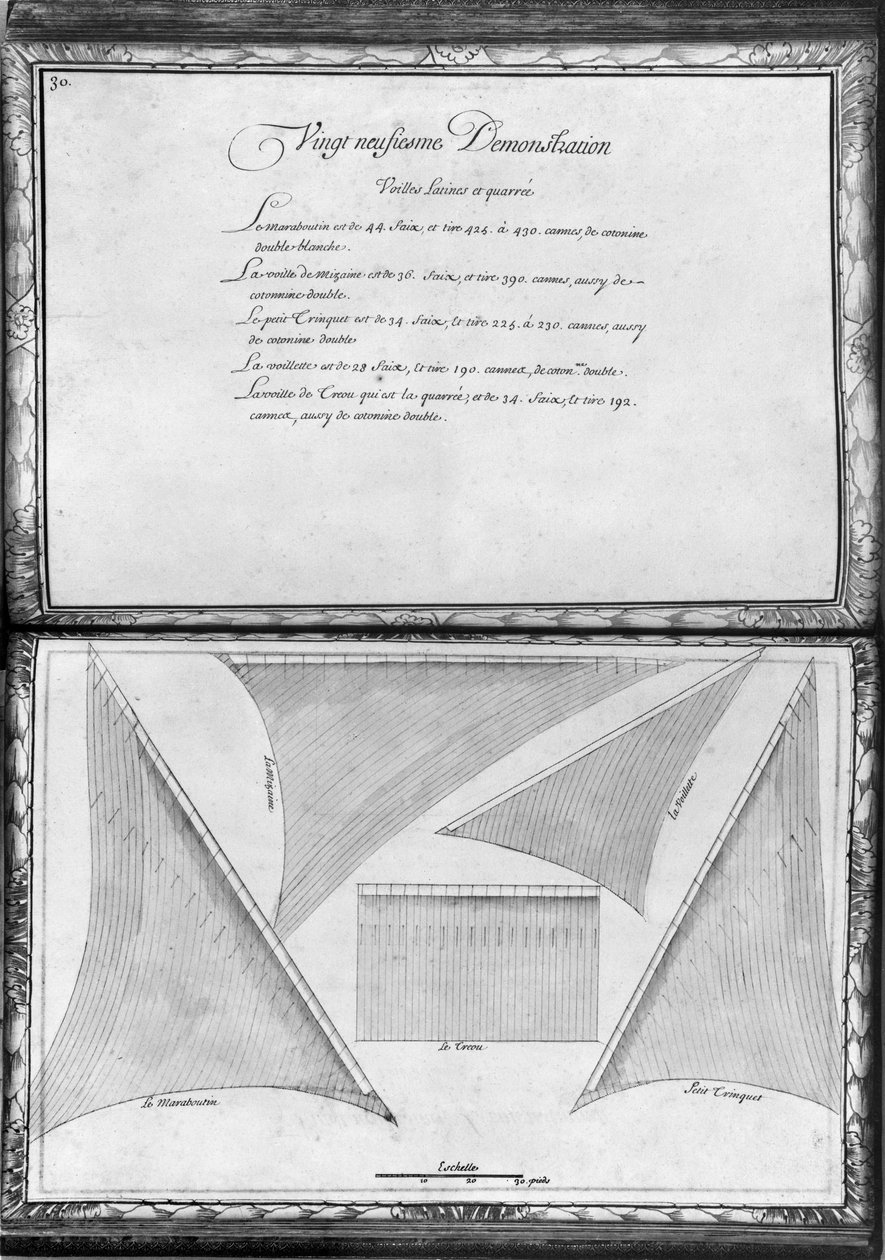 30.
Vingt neufiesme Demonstration
Voilles Latines et quarrée
Le maraboutin est de 44. Saix, et tire 425. à 430. cannes, de cotonine
double blanche.
La voille de Mizaine est de 36. Saix, et tire 390. cannes, aussy de
cotonnine double.
Le petit Trinquet est de 34. Saix, Et tire 225. á 230. cannes, aussy
de cotonine double
La voillette est de 28 Saix, Et tire 190. cannes, de coton.ne double.
La voille de Treou qui est la quarrée, et de 34. Saix, Et tire 192.
cannes, aussy de cotonine double.
La Mizaine
la Voillette
Le Treou
Le Maraboutin
Petit Trinquet
Eschelle
10 20 30. pieds